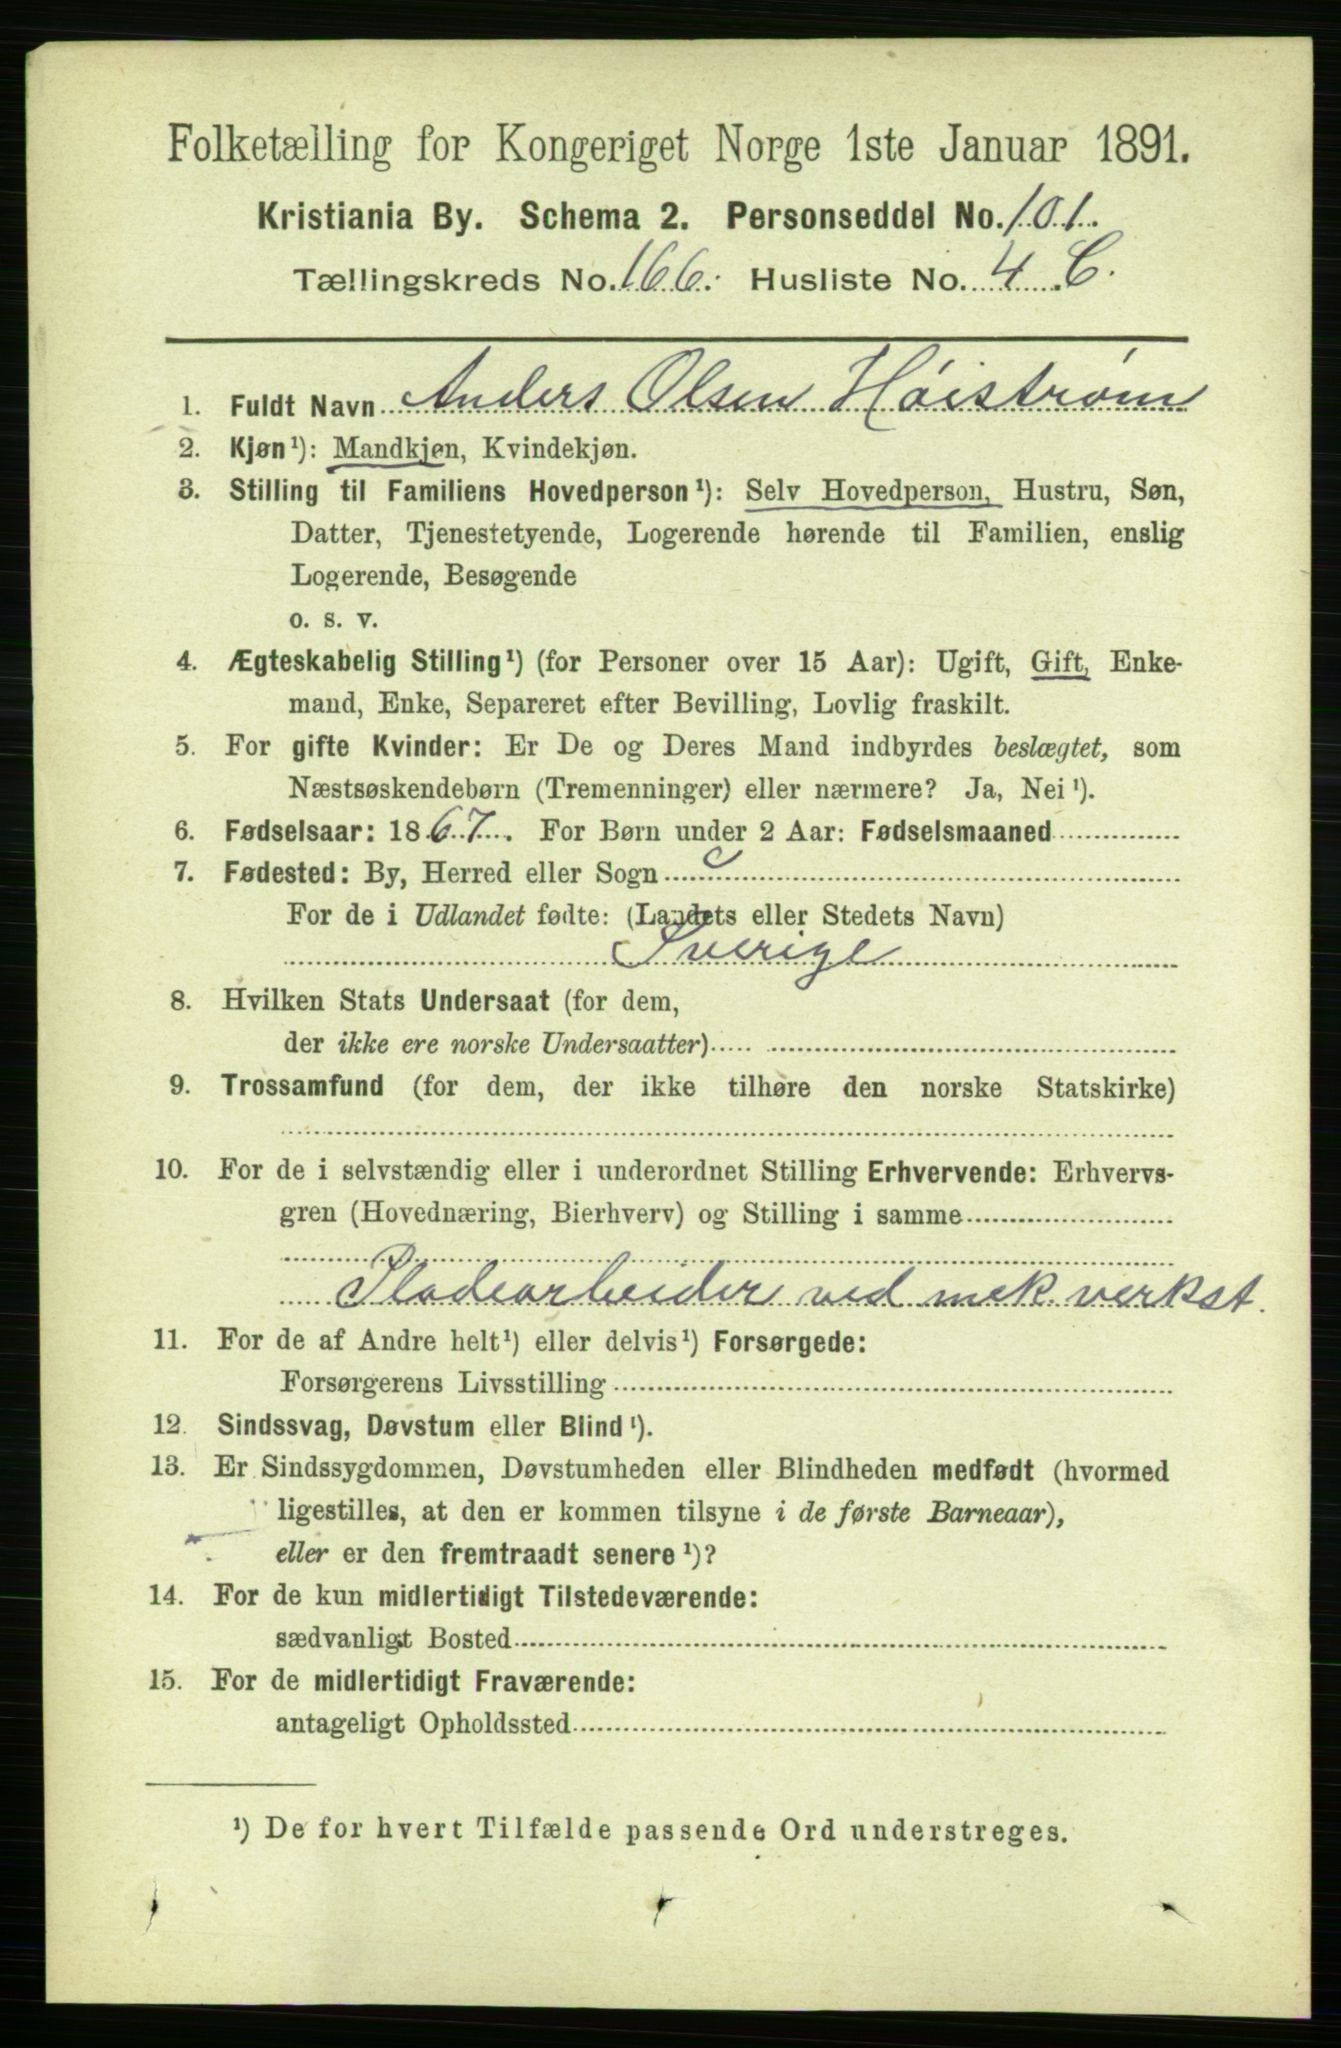 Folketælling for Kongeriget Norge 1ste Januar 1891.
Kristiania By. Schema 2. Personseddel No. 101.
Tællingskreds No. 166. Husliste No. 4 C.
1. Fuldt Navn Anders Olsen Höistrøm
2. Kjøn¹): Mandkjøn, Kvindekjøn.
3. Stilling til Familiens Hovedperson¹): Selv Hovedperson, Hustru, Søn,
Datter, Tjenestetyende, Logerende hørende til Familien, enslig
Logerende, Besøgende
o. s. v.
4. Ægteskabelig Stilling¹) (for Personer over 15 Aar): Ugift, Gift, Enke-
mand, Enke, Separeret efter Bevilling, Lovlig fraskilt.
5. For gifte Kvinder: Er De og Deres Mand indbyrdes beslægtet, som
Næstsøskendebørn (Tremenninger) eller nærmere? Ja, Nei¹).
6. Fødselsaar: 1867. For Børn under 2 Aar: Fødselsmaaned
7. Fødested: By, Herred eller Sogn
For de i Udlandet fødte: (Landets eller Stedets Navn)
Sverige
8. Hvilken Stats Undersaat (for dem,
der ikke ere norske Undersaatter)
9. Trossamfund (for dem, der ikke tilhøre den norske Statskirke)
10. For de i selvstændig eller i underordnet Stilling Erhvervende: Erhvervs-
gren (Hovednæring, Bierhverv) og Stilling i samme
Pladearbeider ved mek verkst.
11. For de af Andre helt¹) eller delvis¹) Forsørgede:
Forsørgerens Livsstilling
12. Sindssvag, Døvstum eller Blind¹).
13. Er Sindssygdommen, Døvstumheden eller Blindheden medfødt (hvormed
ligestilles, at den er kommen tilsyne i de første Barneaar),
eller er den fremtraadt senere¹)?
14. For de kun midlertidigt Tilstedeværende:
sædvanligt Bosted
15. For de midlertidigt Fraværende:
antageligt Opholdssted
¹) De for hvert Tilfælde passende Ord understreges.